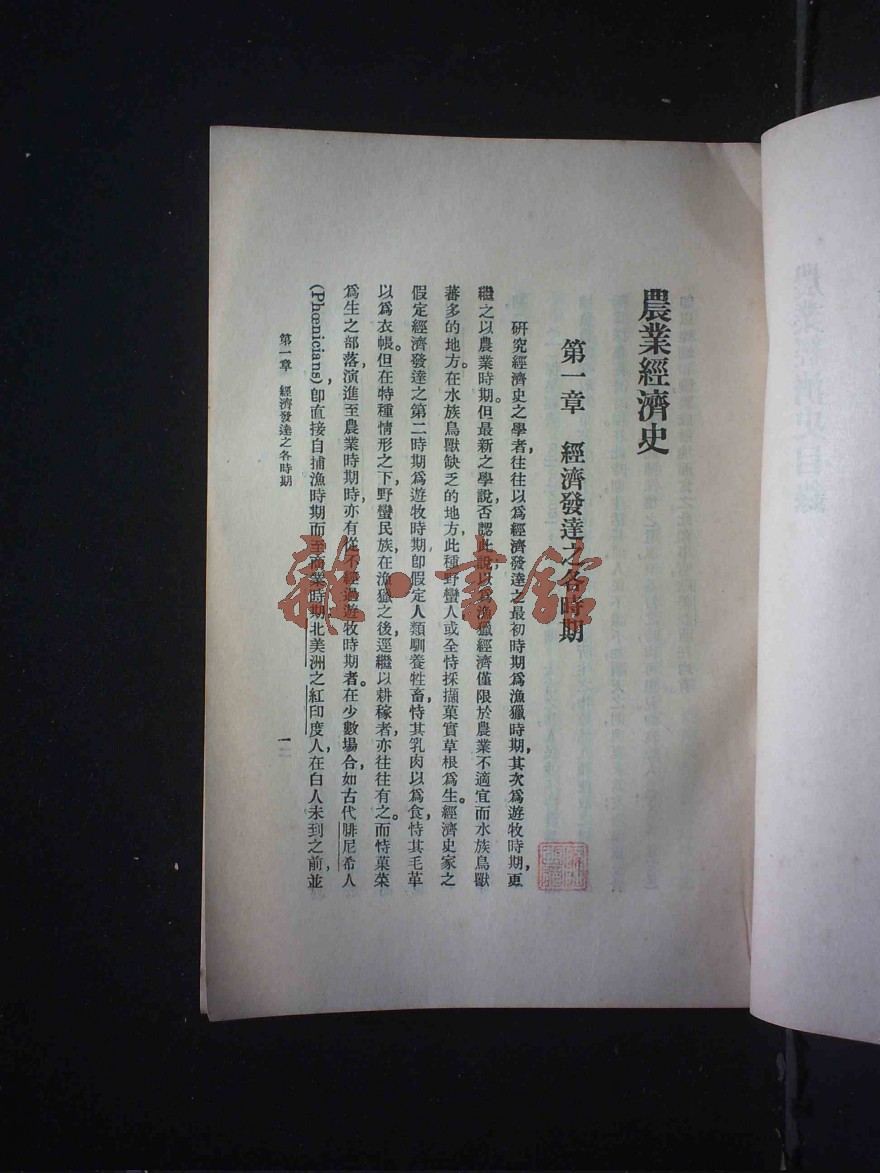 農業經濟史
第一章　經濟發達之各時期
研究經濟史之學者往往以爲經濟發達之最初時期爲漁獵時期，其次爲遊牧時期，更
繼之以農業時期。但最新之學說，否認此說，以爲漁獵經濟僅限於農業不適宜而水族鳥獸
蕃多的地方。在水族鳥獸缺乏的地方，此種野蠻人或全恃採擷菓實草根爲生。經濟史家之
假定經濟發達之第二時期爲遊牧時期，卽假定人類馴養牲畜，恃其乳肉以爲食，恃其毛革
以爲衣帳。但在特種情形之下，野蠻民族，在漁獵之後，逕繼以耕稼者，亦往往有之。而恃菓菜
爲生之部落，演進至農業時期時，亦有從不經過遊牧時期者。在少數場合，如古代腓尼希人
(Phœnicians)，卽直接自捕漁時期而至商業時期。北美洲之紅印度人，在白人未到之前，並
第一章　經濟發達之各時期
一
雜·書館